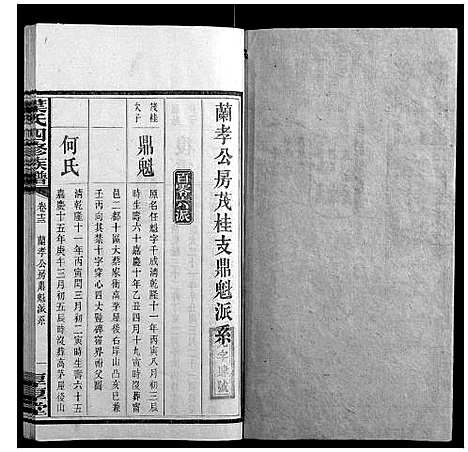 蘭孝公房茂桂支鼎魁派系
百零六派
茂桂
次子
鼎魁
原名任魁字千成清乾隆十一年丙寅八月初三辰
時生壽六十嘉慶十年乙丑四月十九寅時歿葬
邑二都十區大蔡家衝高茅屋後右岸山凸亥巳兼
壬丙向其禁十字穿心四丈豎碑窨界
何氏
清乾隆十一年丙寅閏三月初二寅時生壽六十五
嘉慶十五年庚午三月初五辰時歿葬高茅屋後山
葉氏四修族譜
卷十三
蘭孝公房鼎魁派系